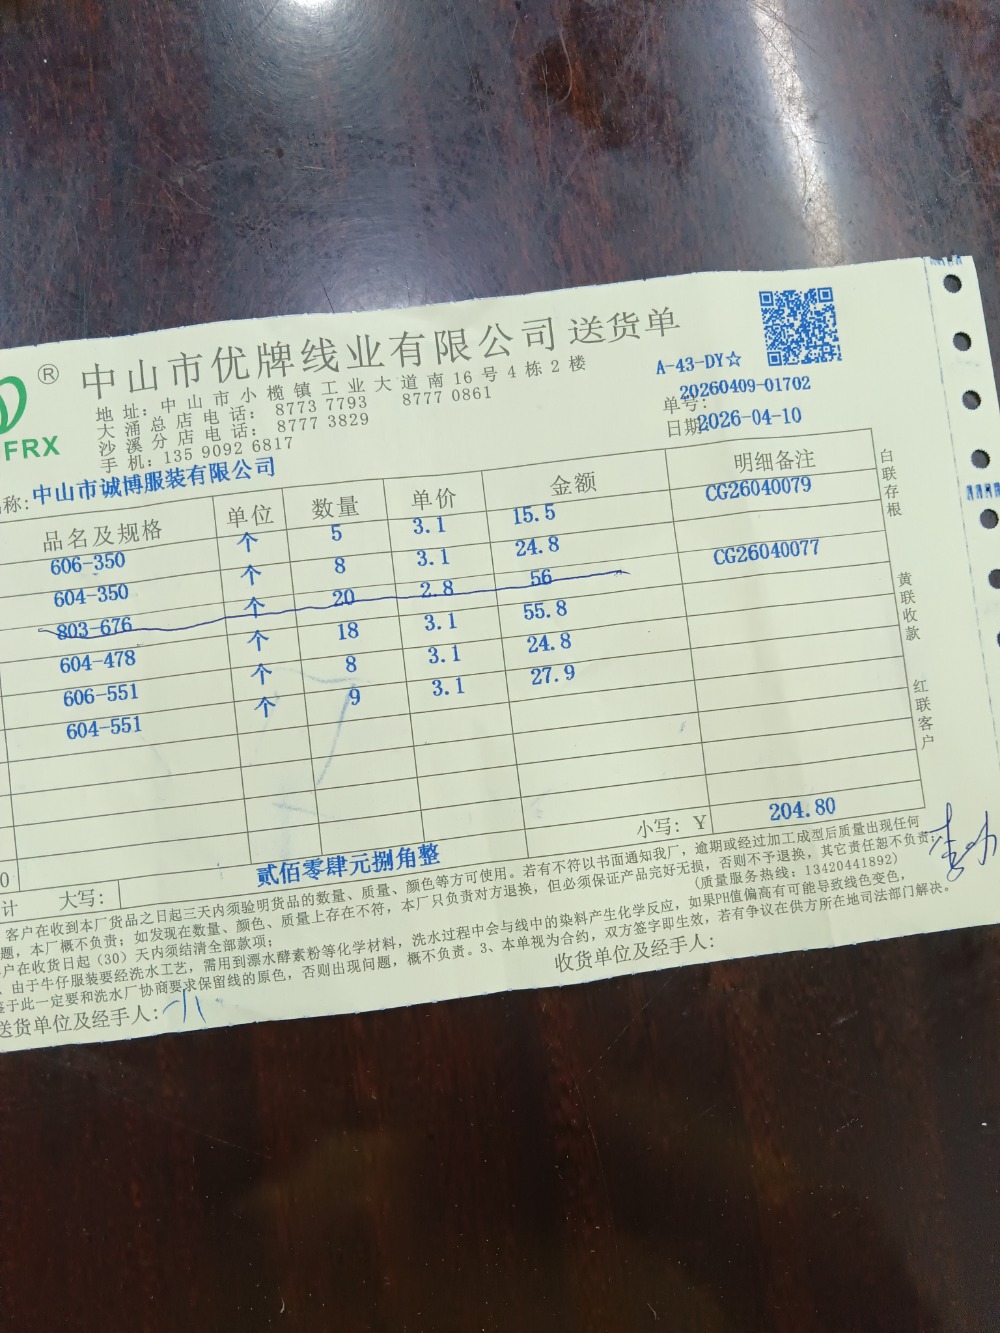 ®
FRX
中山市优牌线业有限公司 送货单
地址：中山市小榄镇工业大道南16号4栋2楼
大涌总店电话： 8773 7793 8777 0861
沙溪分店电话： 8777 3829
手机：135 9092 6817
A-43-DY☆
单号： 20260409-01702
日期 2026-04-10
称：中山市诚博服装有限公司
品名及规格 单位 数量 单价 金额 明细备注
606-350 个 5 3.1 15.5 CG26040079
604-350 个 8 3.1 24.8
803-676 个 20 2.8 56 CG26040077
604-478 个 18 3.1 55.8
606-551 个 8 3.1 24.8
604-551 个 9 3.1 27.9
小写：￥ 204.80
计 大写： 贰佰零肆元捌角整
客户在收到本厂货品之日起三天内须验明货品的数量、质量、颜色等方可使用。若有不符以书面通知我厂，逾期或经过加工成型后质量出现任何
题，本厂概不负责；如发现在数量、颜色、质量上存在不符，本厂只负责对方退换，但必须保证产品完好无损，否则不予退换，其它责任恕不负责。
户在收货日起（30）天内须结清全部款项； (质量服务热线：13420441892)
、由于牛仔服装要经洗水工艺，需用到漂水酵素粉等化学材料，洗水过程中会与线中的染料产生化学反应，如果PH值偏高有可能导致线色变色，
鉴于此一定要和洗水厂协商要求保留线的原色，否则出现问题，概不负责。3、本单视为合约，双方签字即生效，若有争议在供方所在地司法部门解决。
送货单位及经手人：
收货单位及经手人：
白联存根
黄联收款
红联客户